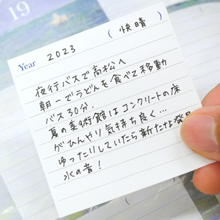 19
2023
(快晴)
Year
夜行バスで高松へ
朝一でうどんを食べて移動
バス30分.
夏の美術館はコンクリートの床
がひんやり気持ち良く…
ゆったりしていたら新たな発見
水の音!